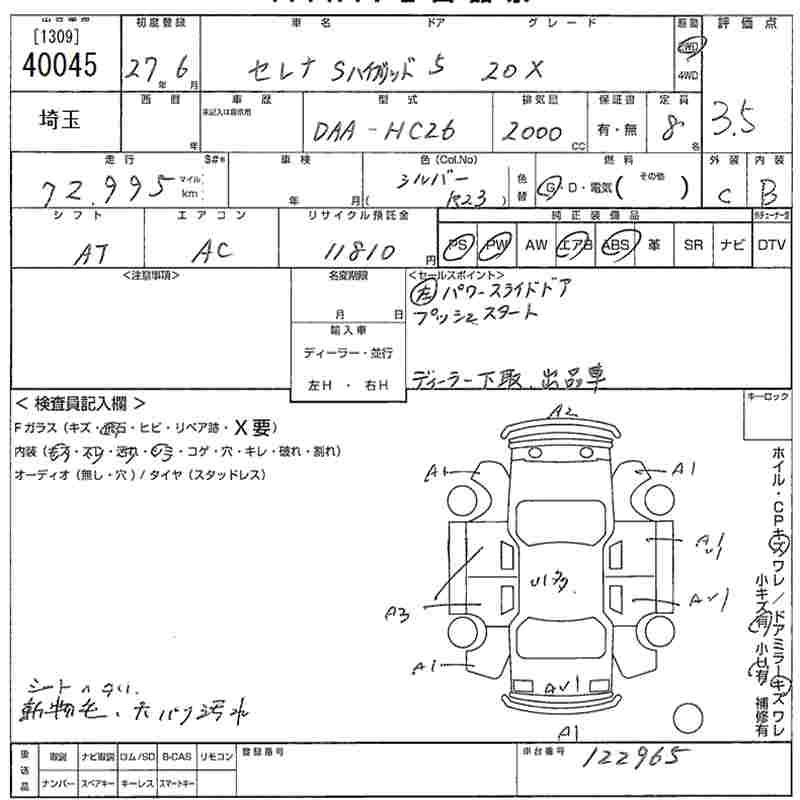 [1309]
40045
初度登録
27年 6月
車名 ドア グレード
セレナ Sハイブリッド 5 20X
駆動
2WD
4WD
評価点
3.5
埼玉
西暦
年
車歴
未記入は自家用
型式
DAA-HC26
排気量
2000 CC
保証書
有・無
定員
8名
走行 S#*
72.995 マイル km
車検
年 月
色(Col.No)
シルバー
( K23 )
色替
燃料
G・D・電気( その他 )
外装
C
内装
B
シフト
AT
エアコン
AC
リサイクル預託金
11810 円
純正装備品
PS PW AW エアB ABS 革 SR ナビ DTV
<注意事項>
名変期限
月 日
輸入車
ディーラー・並行
左H・右H
<セールスポイント>
左 パワースライドドア
プッシュスタート
ディーラー下取 出品車
キーロック
<検査員記入欄>
Fガラス(キズ・飛石・ヒビ・リペア跡・X要)
内装(キズ・スレ・汚れ・シミ・コゲ・穴・キレ・破れ・割れ)
オーディオ(無し・穴)/タイヤ(スタッドレス)
A2
A1 A1
A1
U1
U1多
AU1
A3
A1
AU1
A1
ホイル・CPキズワレ/ドアミラーキズワレ
小キズ有 小U有 補修有
シート
動物毛、天バリ汚れ
後送品
取説 ナビ取説 ロム/SD B-CAS リモコン
ナンバー スペアキー キーレス スマートキー
登録番号
車台番号
122965